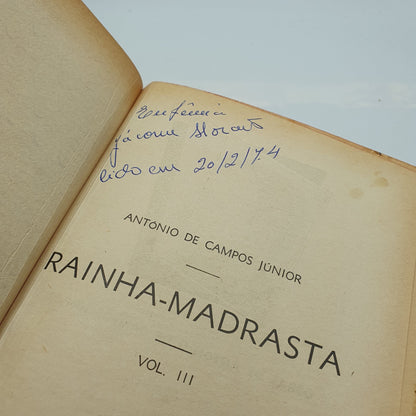 Eufémia
Jácome
lido em 20/2/74
ANTÓNIO DE CAMPOS JÚNIOR
RAINHA-MADRASTA
VOL. III